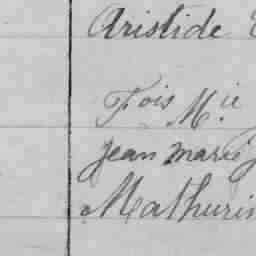 Aristide
Fois Mie
jean marie
Mathurin